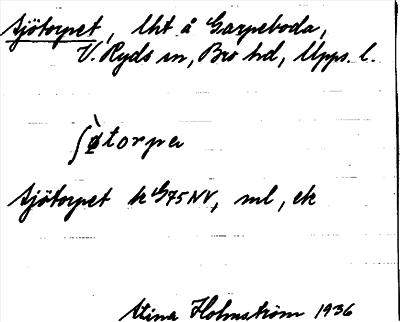 Sjötorpet, lht å Garpeboda,
V. Ryds sn, Bro hd, Upps. l.
ʃø̀torpa
Sjötorpet k G75NV, ml, ek
Stina Holmström 1936